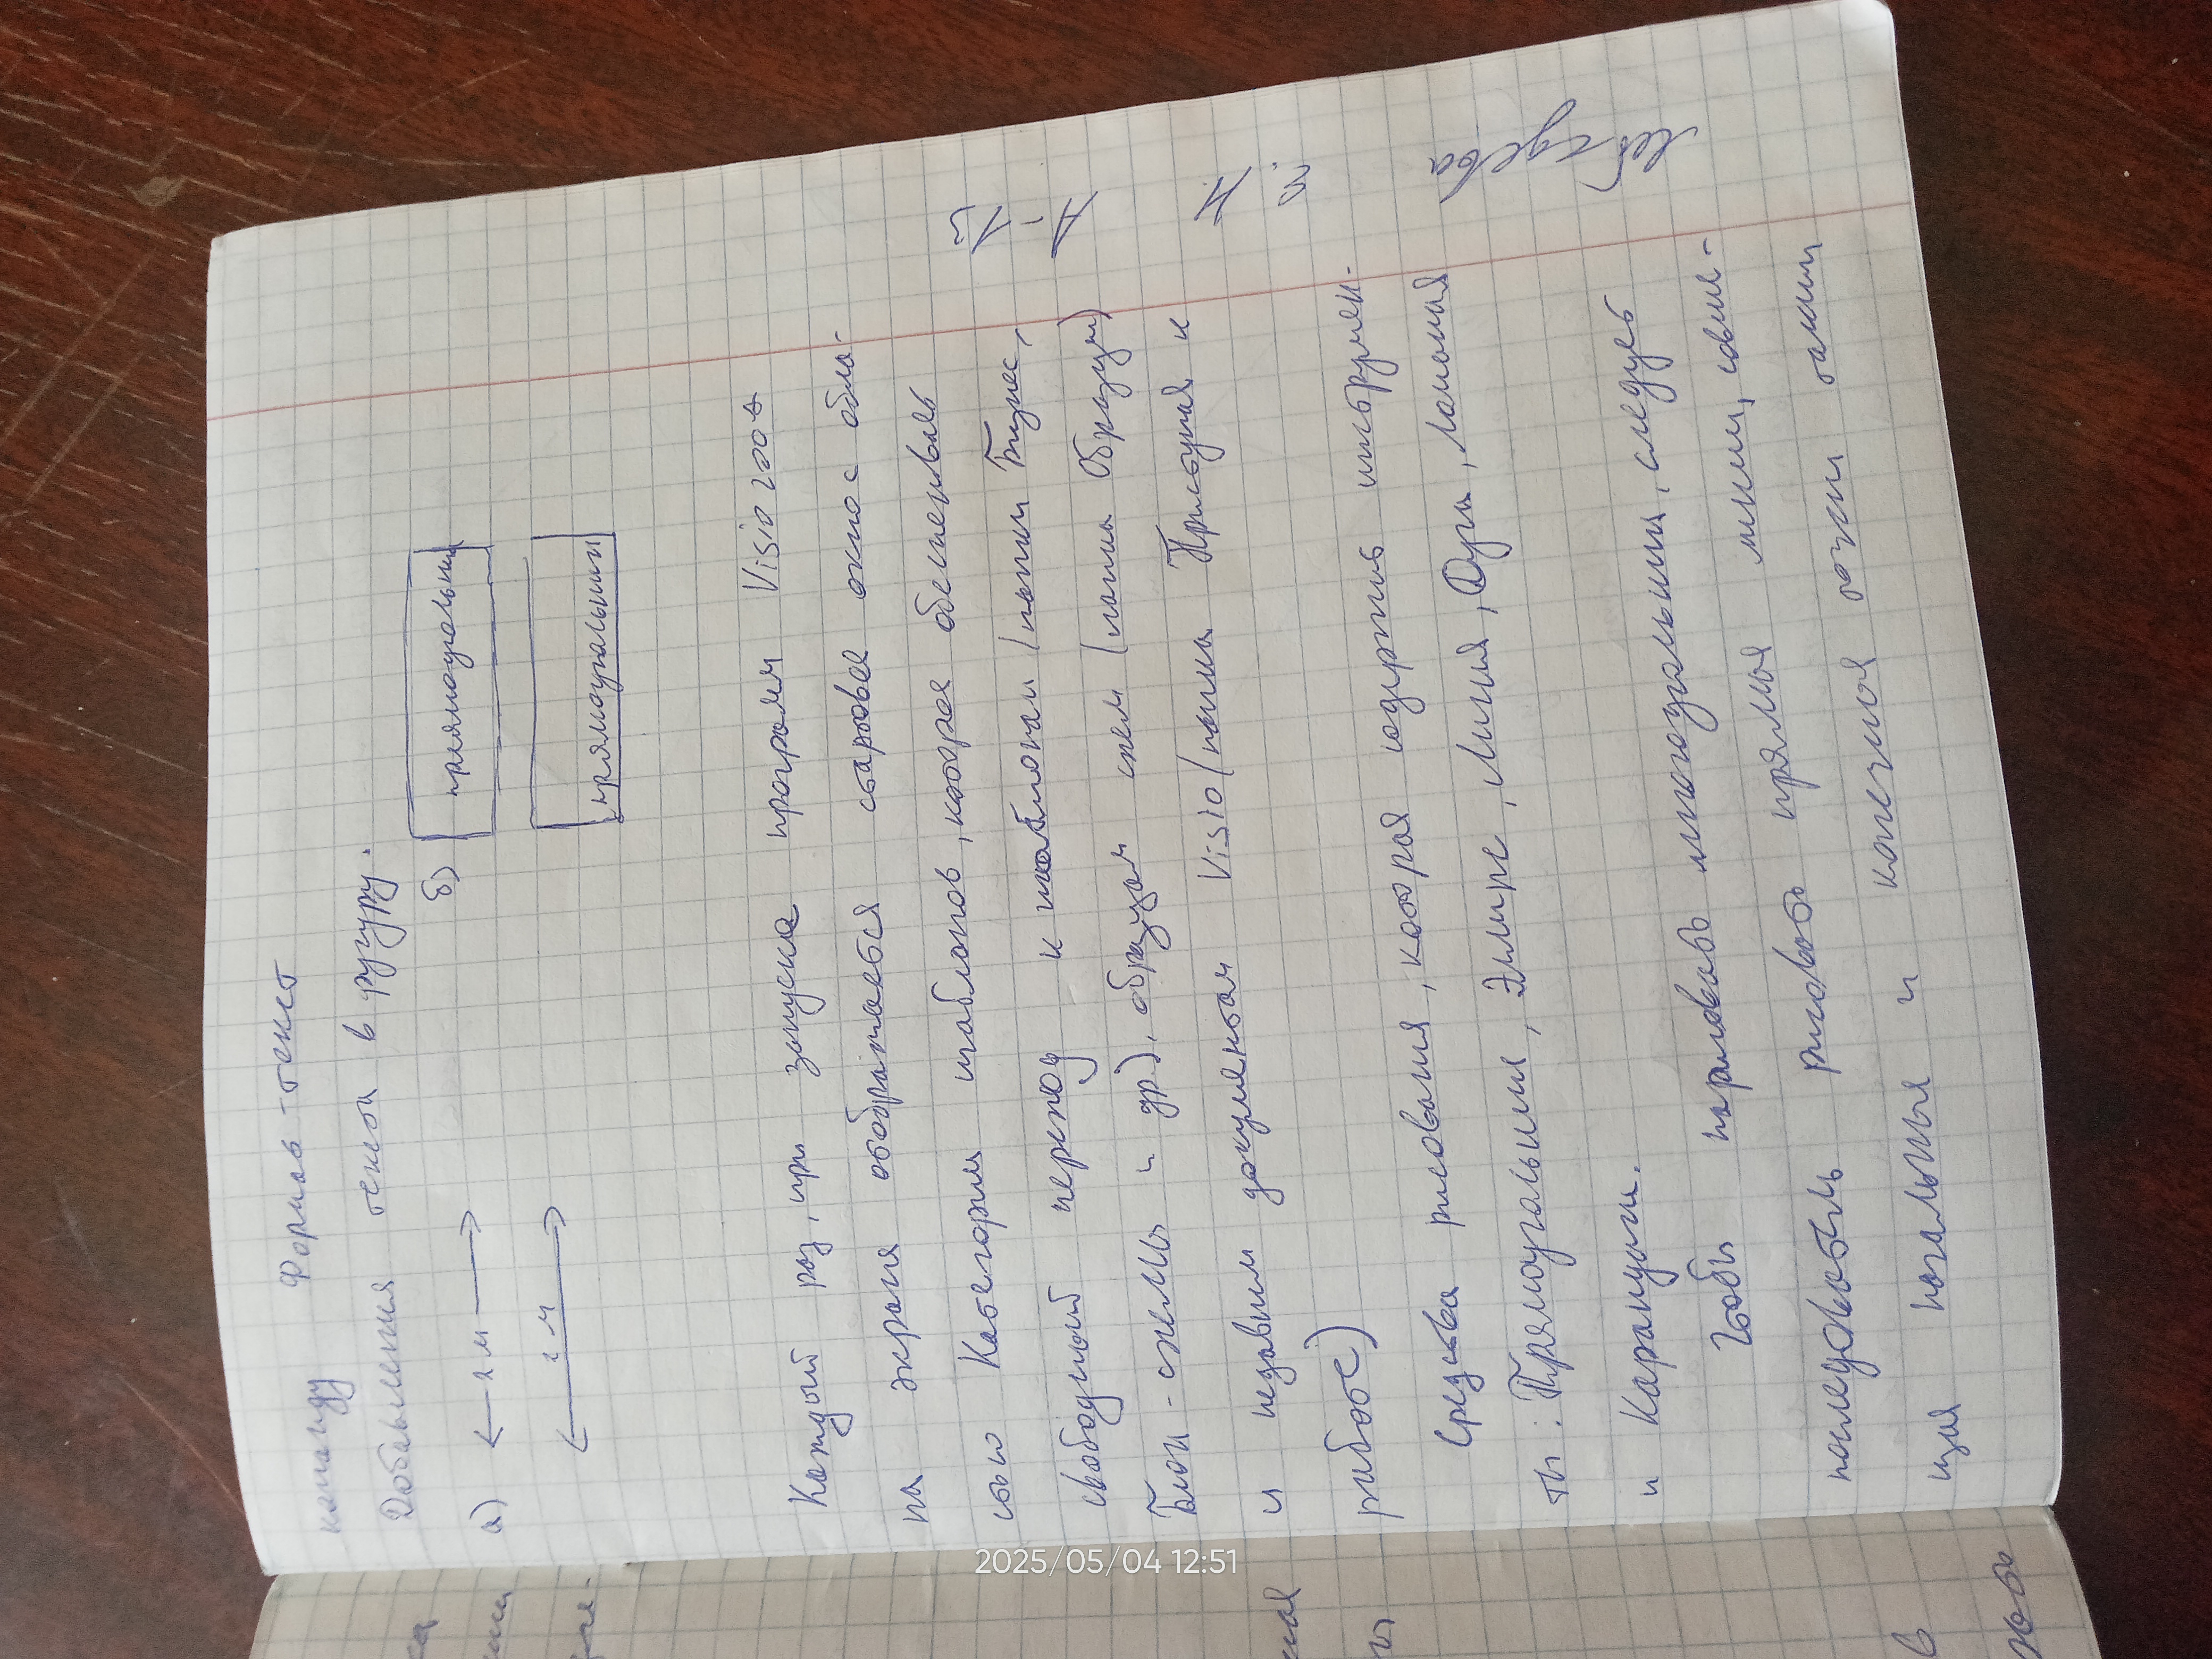 команду Формат-текст
Добавления текст в фигуру.
а) ← 2 м → б) прямоугольник
2 м
прямоугольник
Каждый раз, при запуске программ Visio 2007
на экране отображается старовое окно с обла-
стью Категории шаблонов, которое обеспечивать
свободный переход к шаблонам (папки Бизнес,
Блок-схемы и др), образцам схем (папка Образцы)
и недавним документам Visio (папка Приступая к
работе)
Средства рисования, которая содержия инструмен-
ты: Прямоугольник, Эллипс, Линия, Дуга, Ломаная
и Карандаш.
Чтобы нарисовать многоугольник, следует
последовательь рисовать прямыя линии, совме-
щая начальныя и конечная точки
2025/05/04 12:51